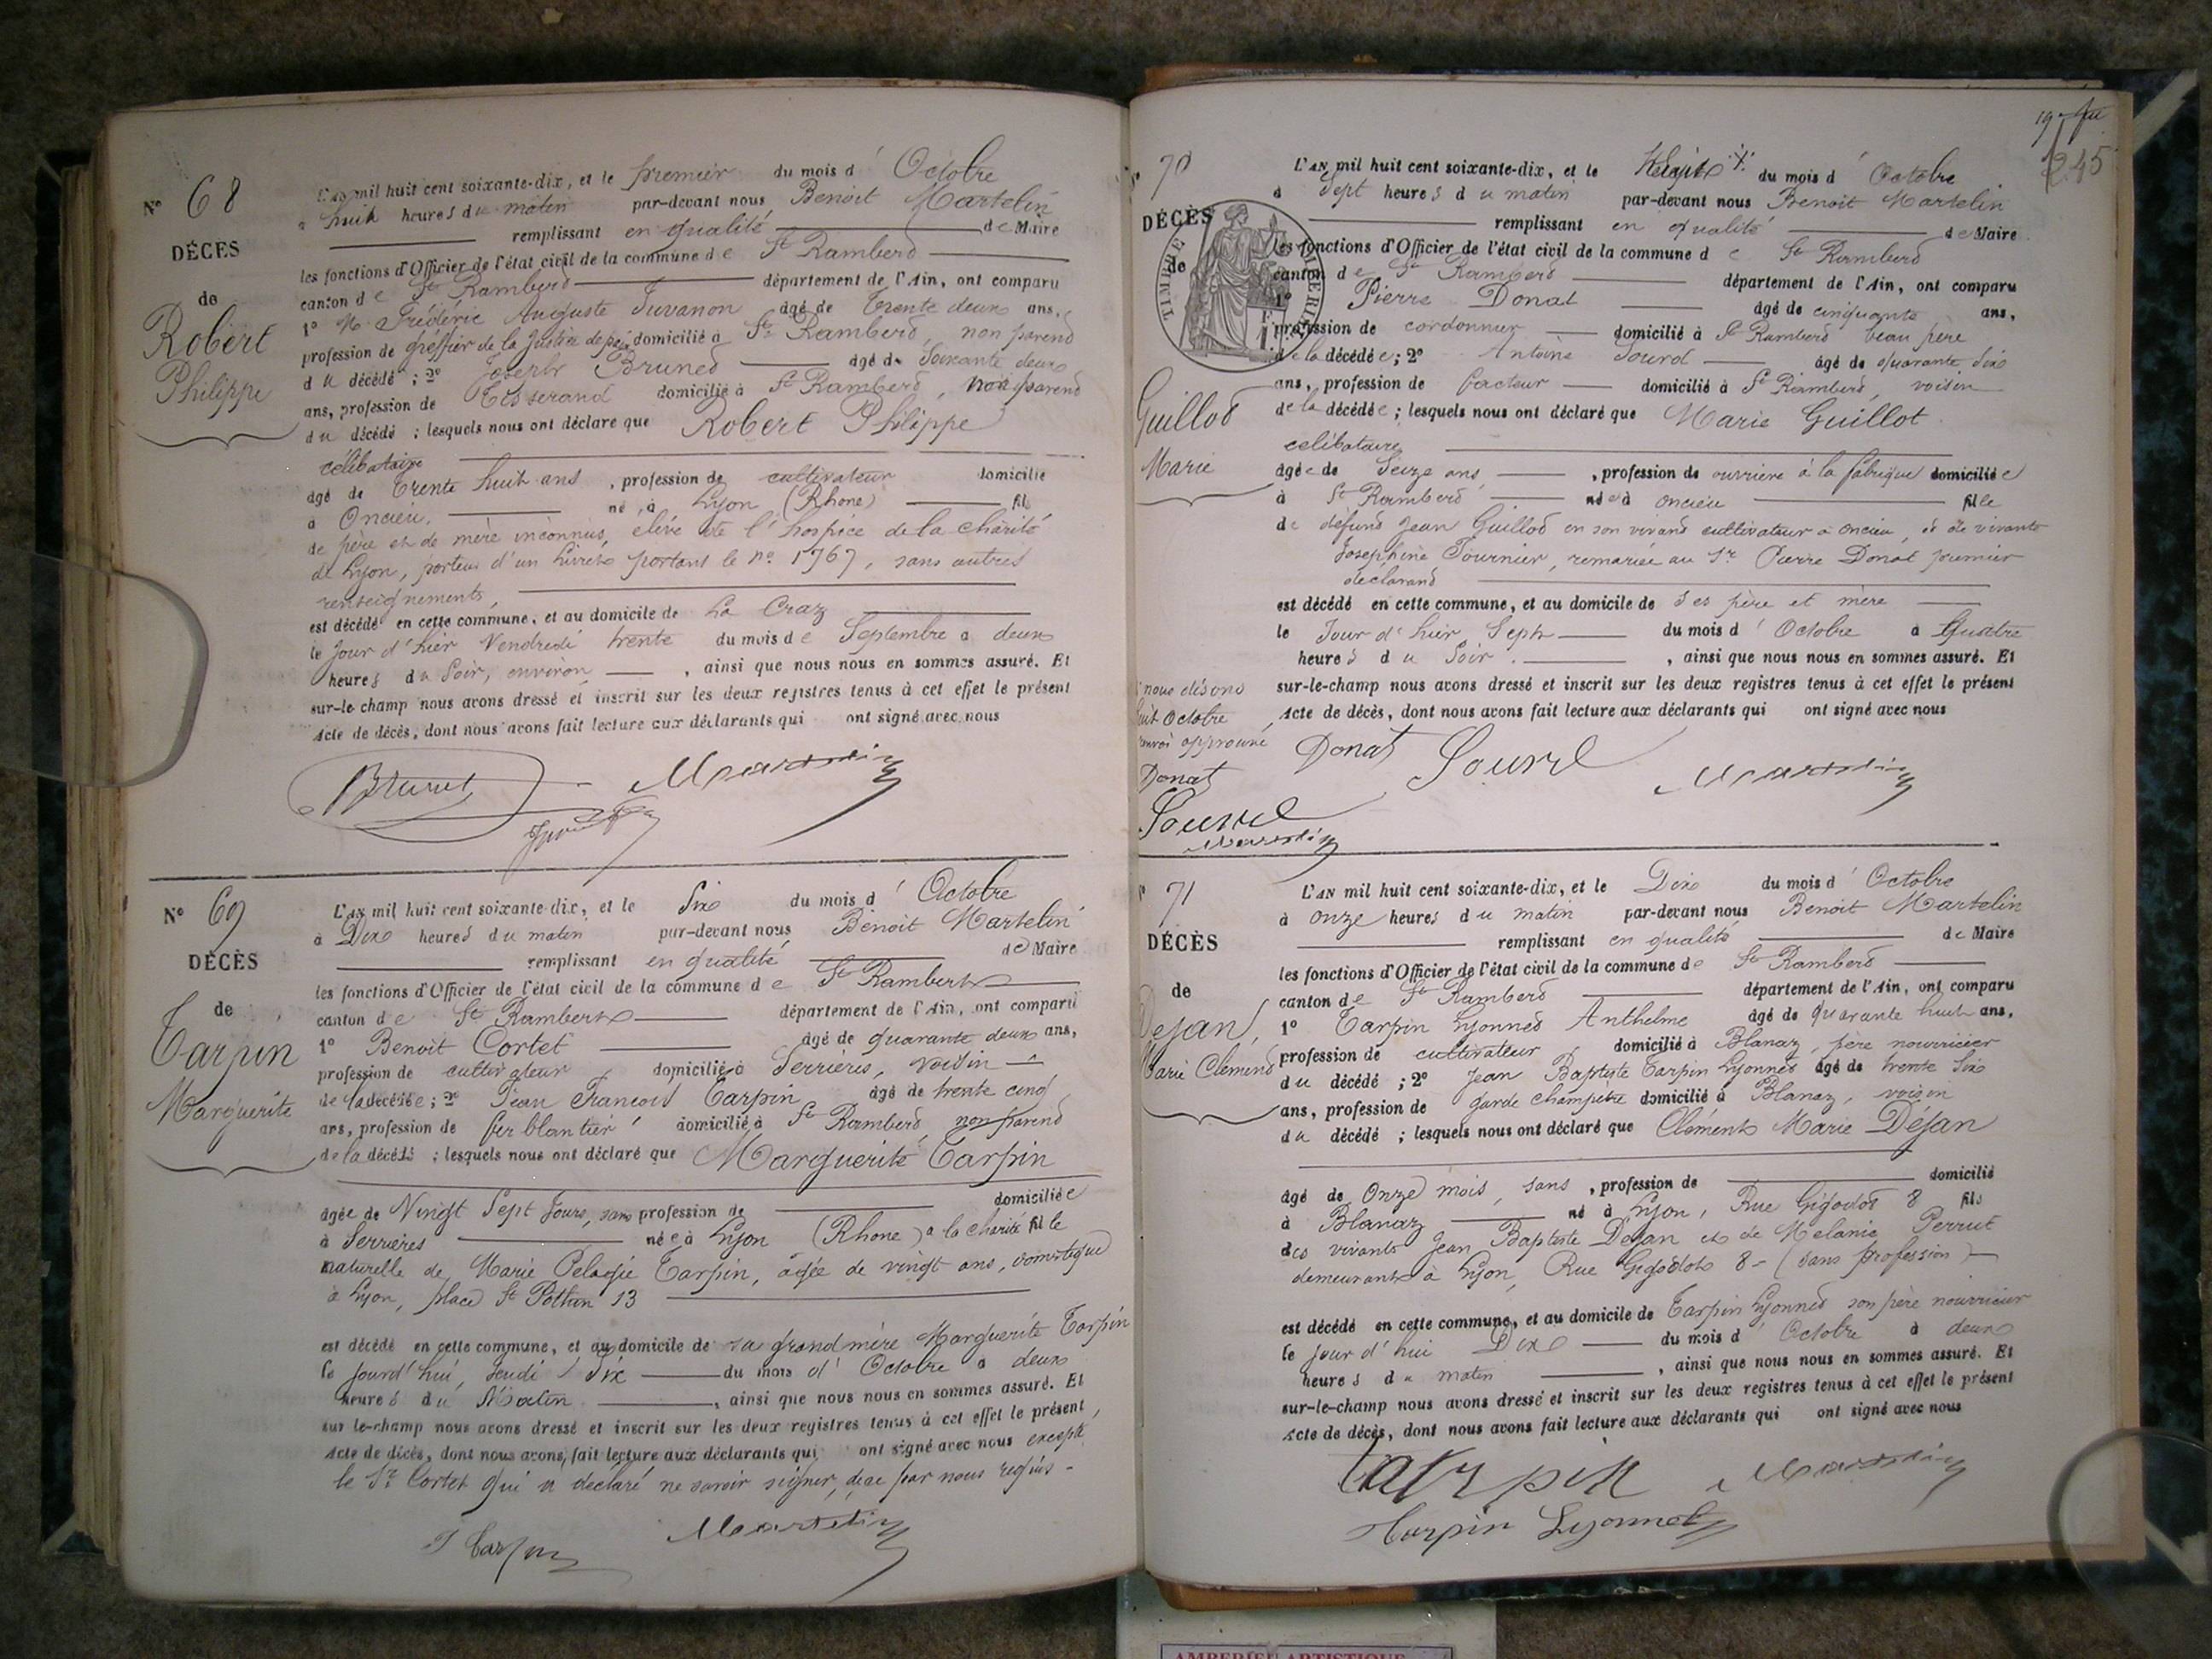 N° 68
DÉCÈS
de
Robert
Philippe
L'AN mil huit cent soixante-dix, et le premier du mois d' Octobre
à huit heures du matin par-devant nous Benoit Martelin
remplissant en qualité de Maire
les fonctions d'Officier de l'état civil de la commune de St Rambert
canton de St Rambert département de l'Ain, ont comparu
1° M. Fréderic Auguste Juvanon âgé de Trente deux ans,
profession de gréffier de la Justice de paix domicilié à St Rambert, non parent
du décédé ; 2° Joseph Brunet âgé de Soixante deux
ans, profession de Tisserand domicilié à St Rambert, non parent
du décédé ; lesquels nous ont déclaré que Robert Philippe
célibataire
âgé de Trente huit ans, profession de cultivateur domicilié
à Oncieu. né à Lyon (Rhone) fils
de père et de mère inconnus, elévé de l'hospice de la charité
de Lyon, porteur d'un Livret portant le n° 1767, sans autres
renseignements,
est décédé en cette commune, et au domicile de La Craz
le jour d'hier Vendredi trente du mois de Septembre à deux
heures du Soir, environ, ainsi que nous nous en sommes assuré. Et
sur-le-champ nous avons dressé et inscrit sur les deux registres tenus à cet effet le présent
Acte de décès, dont nous avons fait lecture aux déclarants qui ont signé avec nous
Brunet Martelin
N° 69
DÉCÈS
de
Tarpin
Marguerite
L'AN mil huit cent soixante-dix, et le Six du mois d' Octobre
à Dix heures du matin par-devant nous Benoit Martelin
remplissant en qualité de Maire
les fonctions d'Officier de l'état civil de la commune de St Rambert
canton de St Rambert département de l'Ain, ont comparu
1° Benoit Cortet âgé de quarante deux ans,
profession de cultivateur domicilié à Serrières, voisin
de la décédée ; 2° Jean François Tarpin âgé de trente cinq
ans, profession de ferblantier domicilié à St Rambert, non parent
de la décédé ; lesquels nous ont déclaré que Marguerite Tarpin
âgée de Vingt Sept Jours, sans profession de domiciliée
à Serrières née à Lyon (Rhone) à la charité fille
naturelle de Marie Pelagie Tarpin, âgée de vingt ans, domestique
à Lyon, place St Pothin 13
est décédé en cette commune, et au domicile de sa grand mère Marguerite Tarpin
le jourd'hui, Jeudi Six du mois d' Octobre à deux
heures du Matin, ainsi que nous nous en sommes assuré. Et
sur le-champ nous avons dressé et inscrit sur les deux registres tenus à cet effet le présent
Acte de décès, dont nous avons fait lecture aux déclarants qui ont signé avec nous excepté
le Sr Cortet qui a declaré ne savoir signer, de ce par nous requis -
J Tarpin Martelin
245
70
DÉCÈS
de
Guillot
Marie
TIMBRE
L'AN mil huit cent soixante-dix, et le du mois d' Octobre
à Sept heures du matin par-devant nous Benoit Martelin
remplissant en qualité de Maire
les fonctions d'Officier de l'état civil de la commune de St Rambert
canton de St Rambert département de l'Ain, ont comparu
1° Pierre Donat âgé de cinquante ans,
profession de cordonnier domicilié à St Rambert beau père
de la décédée ; 2° Antoine Sourd âgé de quarante Six
ans, profession de facteur domicilié à St Rambert, voisin
de la décédée ; lesquels nous ont déclaré que Marie Guillot
célibataire
âgée de Seize ans, profession de ouvrière à la fabrique domiciliée
à St Rambert née à Oncieu fille
de défunt Jean Guillot en son vivant cultivateur à Oncieu, et de vivante
Josephine Fournier, remariée au Sr Pierre Donat premier
declarant
est décédé en cette commune, et au domicile de Ses père et mère
le Jour d'hier Sept du mois d' Octobre à Quatre
heures du Soir., ainsi que nous nous en sommes assuré. Et
sur-le-champ nous avons dressé et inscrit sur les deux registres tenus à cet effet le présent
Acte de décès, dont nous avons fait lecture aux déclarants qui ont signé avec nous
nous disons
huit Octobre
renvoi approuvé
Donat
Sourd
Martelin
Donat Sourd Martelin
71
DÉCÈS
de
Dejan,
Marie Clement
L'AN mil huit cent soixante-dix, et le Dix du mois d' Octobre
à onze heures du matin par-devant nous Benoit Martelin
remplissant en qualité de Maire
les fonctions d'Officier de l'état civil de la commune de St Rambert
canton de St Rambert département de l'Ain, ont comparu
1° Tarpin Lyonnet Anthelme âgé de quarante huit ans,
profession de cultivateur domicilié à Blanaz, père nourricier
du décédé ; 2° Jean Baptiste Tarpin Lyonnet âgé de trente Six
ans, profession de garde champètre domicilié à Blanaz, voisin
du décédé ; lesquels nous ont déclaré que Clément Marie Déjan
âgé de Onze mois, sans, profession de domicilié
à Blanaz né à Lyon, Rue Gigodot 8 fils
des vivants Jean Baptiste Dejan et de Melanie Perrut
demeurants à Lyon, Rue Gigodot 8 - (sans profession)
est décédé en cette commune, et au domicile de Tarpin Lyonnet son père nourricier
le jour d'hui Dix du mois d' Octobre à deux
heures du matin, ainsi que nous nous en sommes assuré. Et
sur-le-champ nous avons dressé et inscrit sur les deux registres tenus à cet effet le présent
Acte de décès, dont nous avons fait lecture aux déclarants qui ont signé avec nous
Tarpin Martelin
Tarpin Lyonnet
AMBERIEU ARTISTIQUE